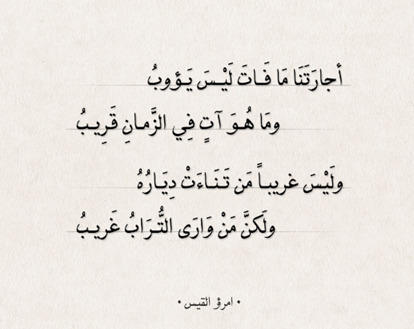 أجارَتَنَا مَا فَـاتَ لَيْـسَ يَـؤوبُ
ومَا هُـوَ آتٍ فِي الزَّمـانِ قَرِيـبُ
ولَيْسَ غريبـاً مَن تَـنَـاءَتْ دِيَـارُهُ
ولَكنَّ مَنْ وَارَى التُّـرَابُ غَريـبُ
• امرؤ القيس •